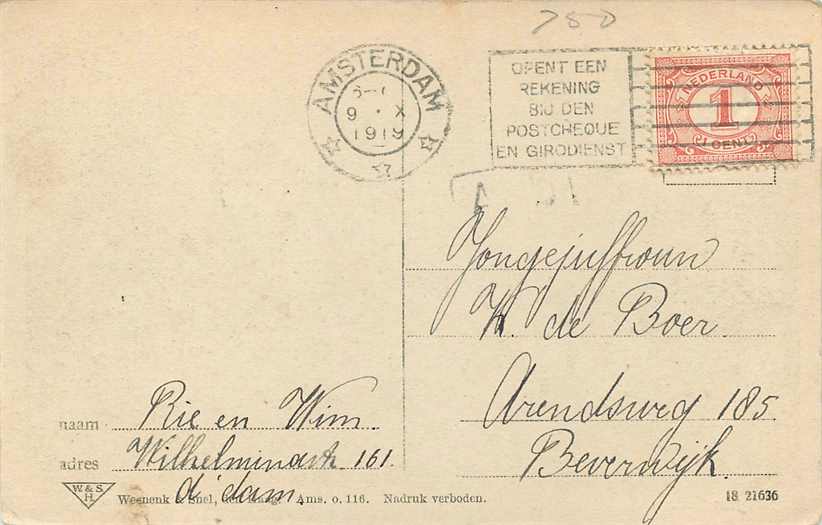 750
AMSTERDAM
9 X
1919
OPENT EEN
REKENING
BIJ DEN
POSTCHEQUE
EN GIRODIENST
NEDERLAND
1
CENT
T
Jongejuffrouw
W. de Boer
Arendsweg 185
Beverwijk
naam Rie en Wim.
adres Wilhelminastr 161.
A'dam.
W. & S.
H.
Weenenk & Snel, den Haag. Ams. o. 116. Nadruk verboden.
18 21636